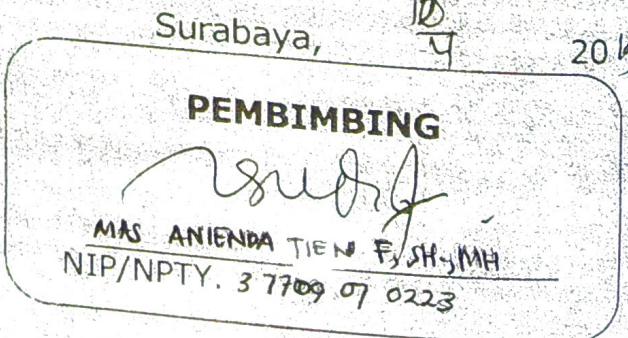 Surabaya, 10/4 20
PEMBIMBING
MAS ANIENDA TIEN F, SH, MH
NIP/NPTY. 3 7709 07 0223